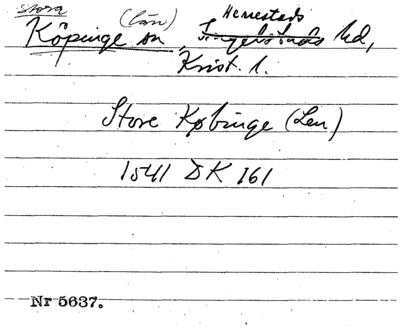 Stora (län) Herrestads
Köpinge sn, Ingelstads hd,
Krist. l.
Store Købinge (Len)
1541 DK 161
Nr 5637.